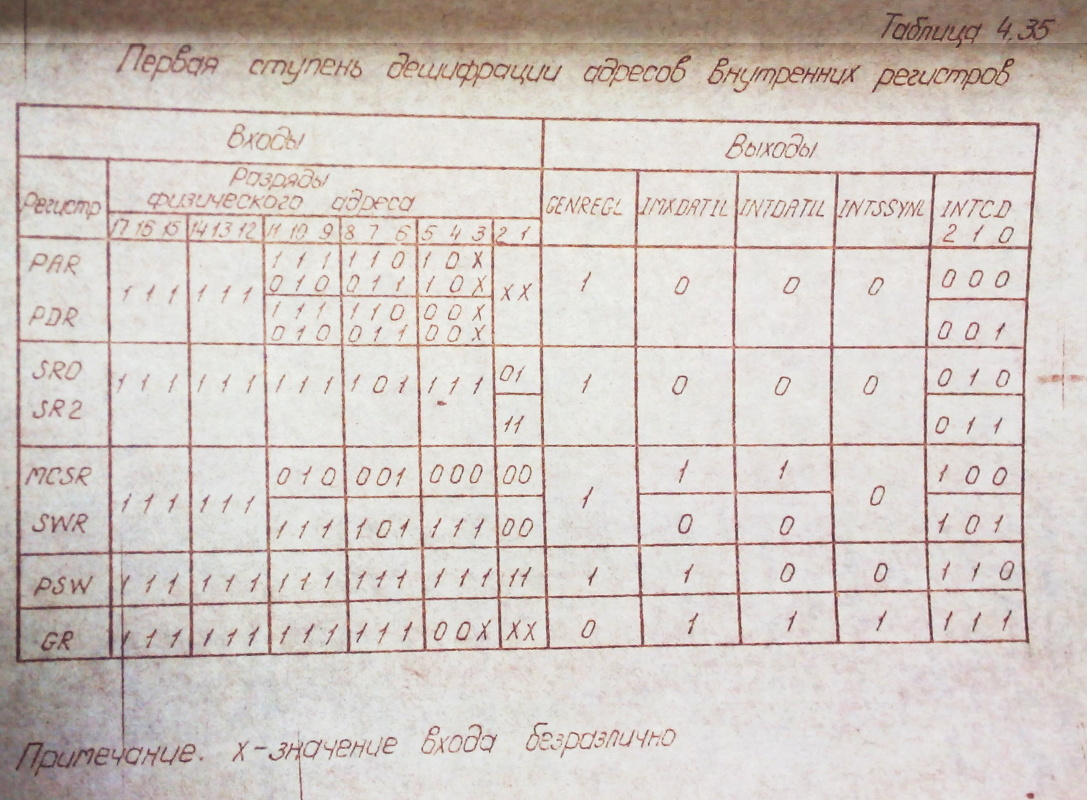 Таблица 4.35
Первая ступень дешифрации адресов внутренних регистров
Входы Выходы
Регистр Разряды физического адреса GENREGL IMXDATIL INTDATIL INTSSYNL INTCD
17 16 15 14 13 12 11 10 9 8 7 6 5 4 3 2 1 2 1 0
PAR 1 1 1 1 1 1 1 1 1 1 1 0 1 0 X X X 1 0 0 0 0 0 0
0 1 0 0 1 1 1 0 X
PDR 1 1 1 1 1 0 0 0 X 0 0 1
0 1 0 0 1 1 0 0 X
SR0 1 1 1 1 1 1 1 1 1 1 0 1 1 1 1 01 1 0 0 0 0 1 0
SR2 11 0 1 1
MCSR 1 1 1 1 1 1 0 1 0 0 0 1 0 0 0 0 0 1 1 1 0 1 0 0
SWR 1 1 1 1 0 1 1 1 1 0 0 0 0 1 0 1
PSW 1 1 1 1 1 1 1 1 1 1 1 1 1 1 1 11 1 1 0 0 1 1 0
GR 1 1 1 1 1 1 1 1 1 1 1 1 0 0 X X X 0 1 1 1 1 1 1
Примечание. х-значение входа безразлично